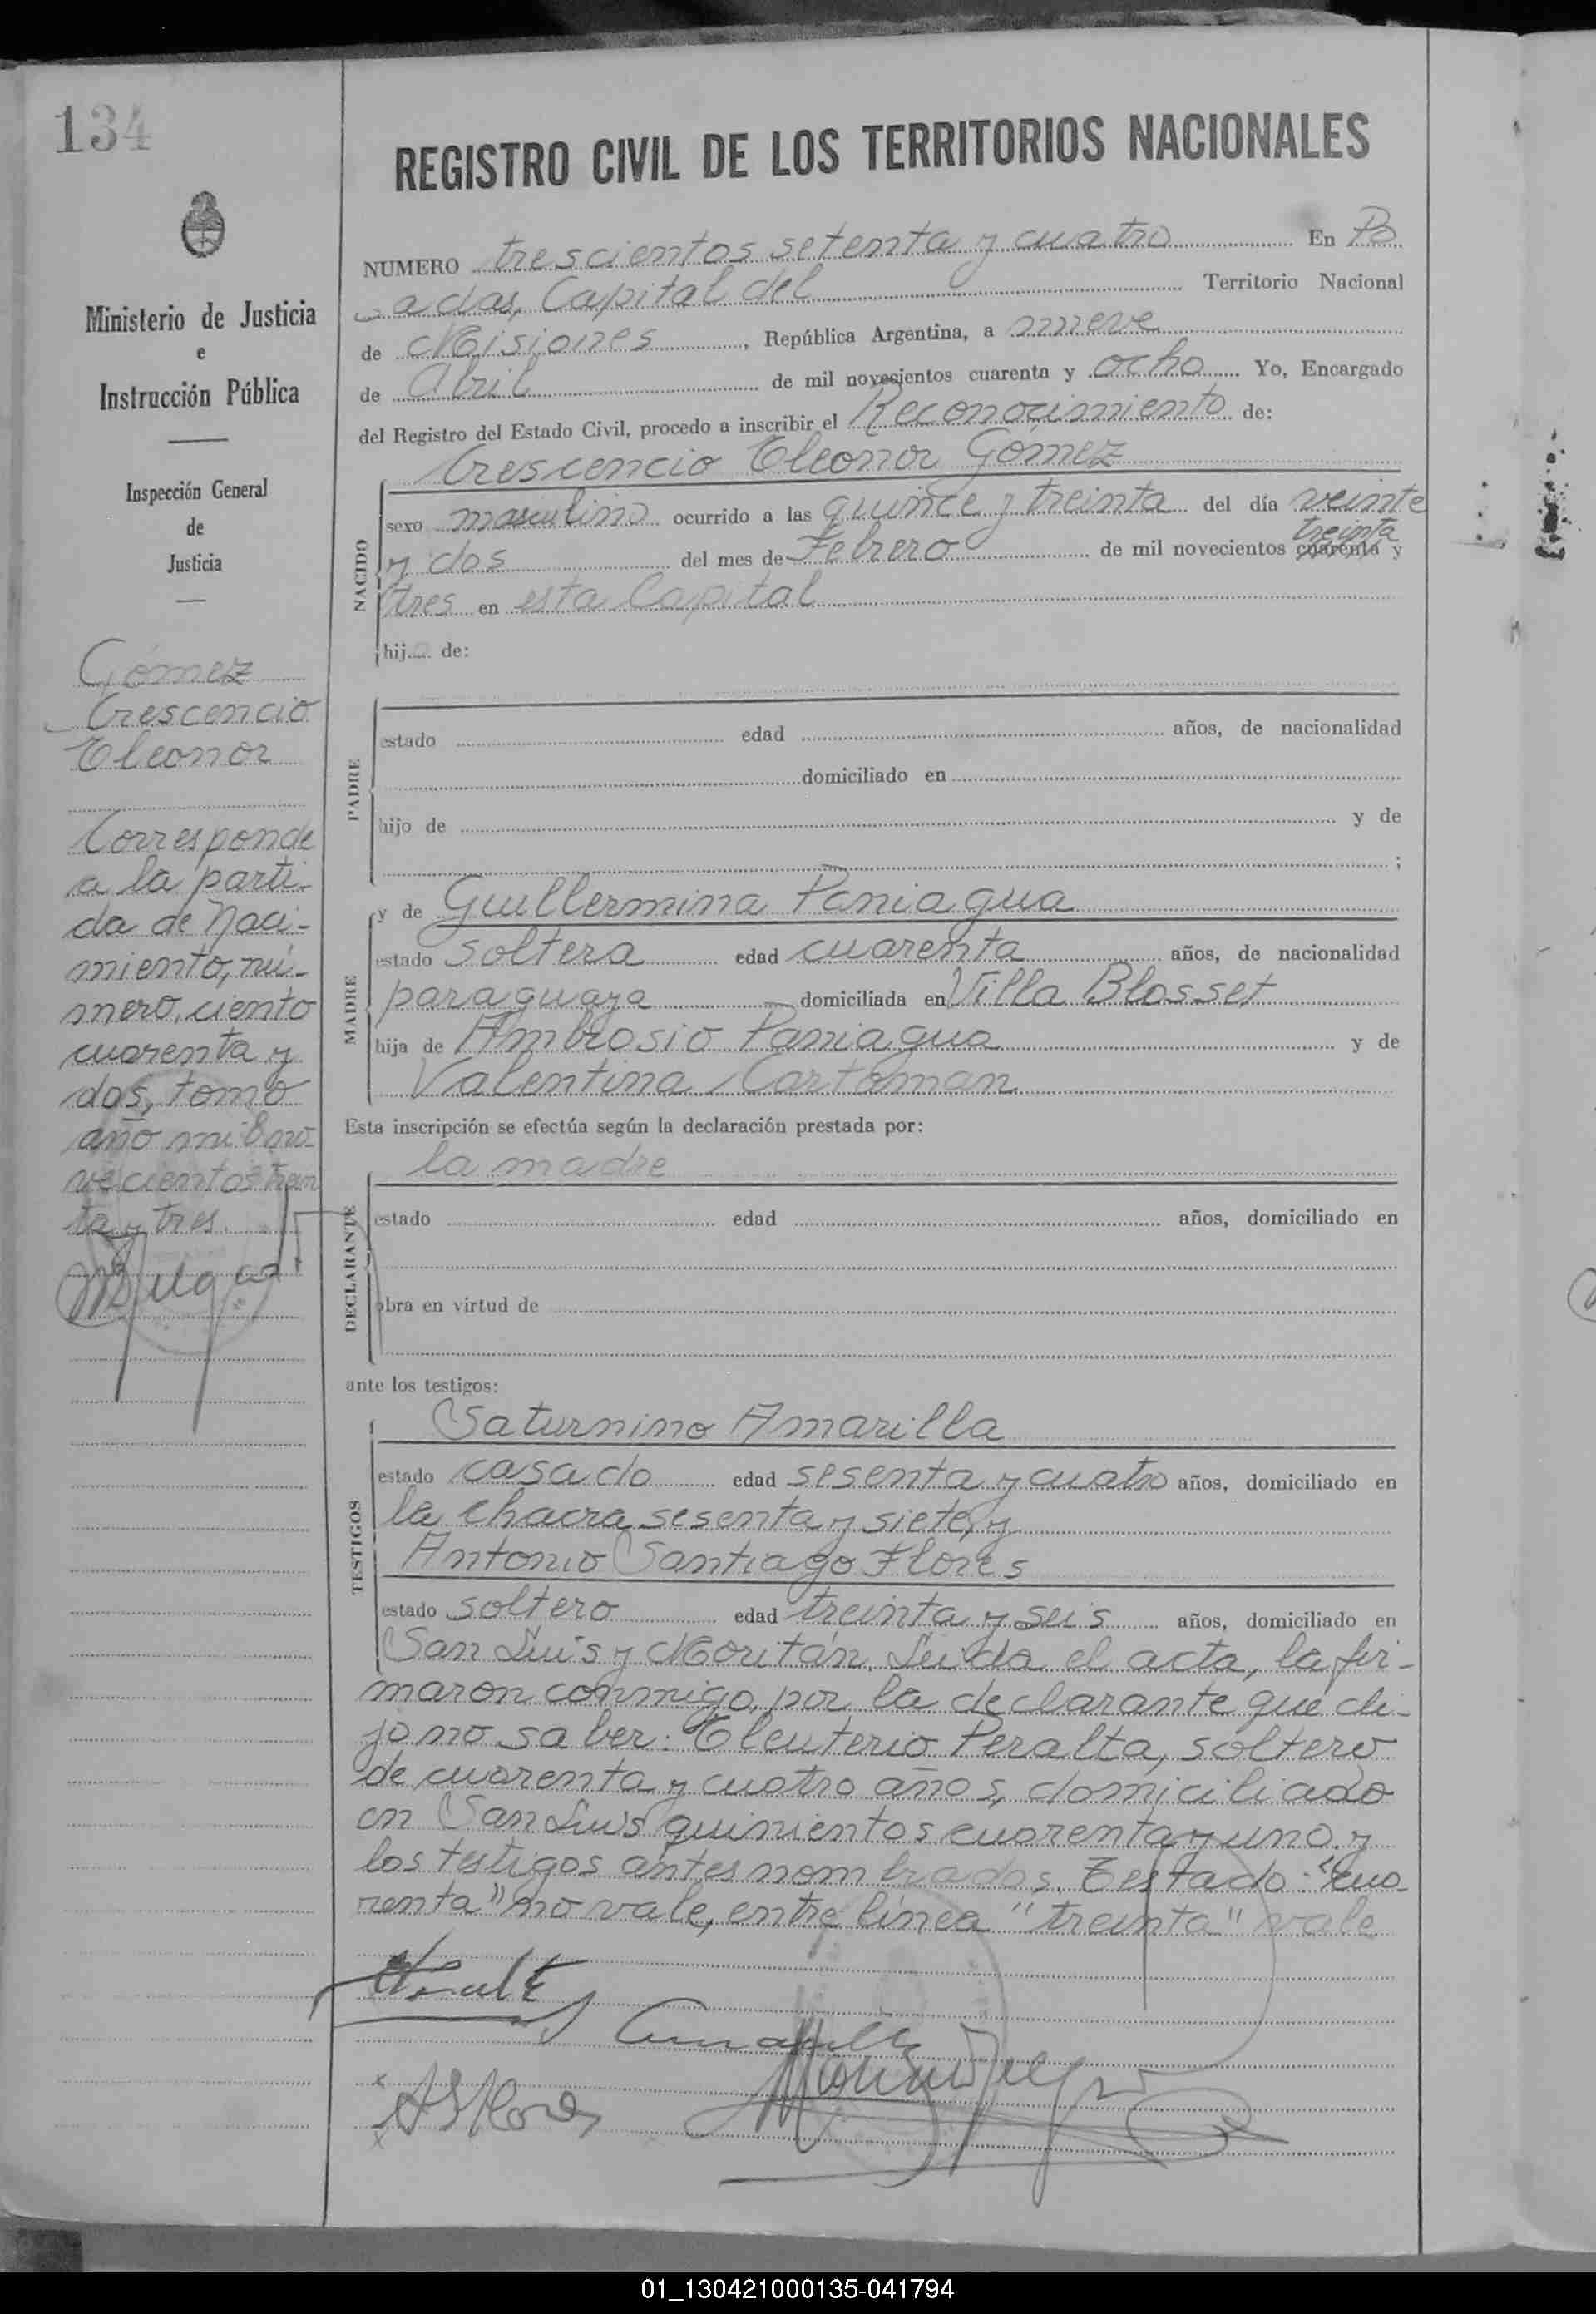 134
Ministerio de Justicia
e
Instrucción Pública
Inspección General
de
Justicia
Gómez
Crescencio
Eleonor
Corresponde
a la parti-
da de Naci-
miento, nú-
mero, ciento
cuarenta y
dos, tomo
año mil no-
vecientos trein
ta y tres.
REGISTRO CIVIL DE LOS TERRITORIOS NACIONALES
NUMERO trescientos setenta y cuatro En Po
sadas, Capital del Territorio Nacional
de Misiones, República Argentina, a nueve
de Abril de mil novecientos cuarenta y ocho Yo, Encargado
del Registro del Estado Civil, procedo a inscribir el Reconocimiento de:
Crescencio Eleonor Gómez
NACIDO
sexo masculino ocurrido a las quince y treinta del día veinte
treinta
y dos del mes de Febrero de mil novecientos cuarenta y
tres en esta Capital
hijo de:
PADRE
estado edad años, de nacionalidad
domiciliado en
hijo de y de
;
MADRE
y de Guillermina Paniagua
estado soltera edad cuarenta años, de nacionalidad
paraguaya domiciliada en Villa Blosset
hija de Ambrosio Paniagua y de
Valentina Cartaman
Esta inscripción se efectúa según la declaración prestada por:
la madre
DECLARANTE
estado edad años, domiciliado en
obra en virtud de
ante los testigos:
TESTIGOS
Saturnino Amarilla
estado casado edad sesenta y cuatro años, domiciliado en
la chacra sesenta y siete, y
Antonio Santiago Flores
estado soltero edad treinta y seis años, domiciliado en
San Luis y Moritán. Leída el acta, la fir-
maron conmigo, por la declarante que di-
jo no saber: Eleuterio Peralta, soltero
de cuarenta y cuatro años, domiciliado
en San Luis quinientos cuarenta y uno, y
los testigos antes nombrados. Testado: "cua-
renta" no vale, entre línea "treinta" vale
ASFlores
01_130421000135-041794